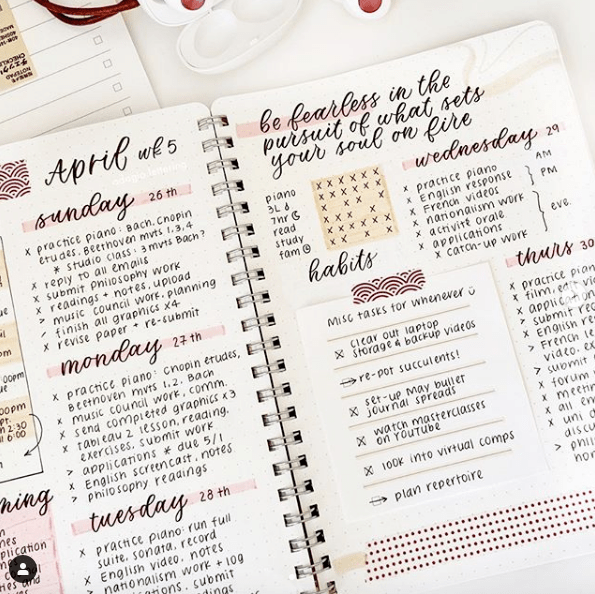 April wk 5
sunday 26th
x practice piano: Bach, Chopin
etudes, Beethoven mvts 1,3,4
* studio class: 3 mvts Bach?
x reply to all emails
x submit philosophy work
x readings + notes, upload
> music council work, planning
x finish all graphics x4
x revise paper + re-submit
monday 27th
x practice piano: Chopin etudes,
Beethoven mvts 1,2, Bach
x music council work, comm.
x send completed graphics x3
x tableau 2 lesson, reading,
exercises, submit work
> applications * due 5/1
x English screencast, notes
> philosophy readings
tuesday 28th
x practice piano: run full
suite, sonata, record
x English video, notes
x nationalism work + log
applications, submit
be fearless in the
pursuit of what sets
your soul on fire
piano
3L
7hr
read
study
fam ☺
habits
wednesday 29
x practice piano
x English response
x French videos
x nationalism work
x activité orale
x applications
x catch-up work
AM
PM
eve.
Misc tasks for whenever
x clear out laptop
storage & backup videos
re-pot succulents!
x set-up May bullet
journal spreads
x watch masterclasses
on YouTube
x look into virtual comps
plan repertoire
thurs 30
practice pian
film,
submit